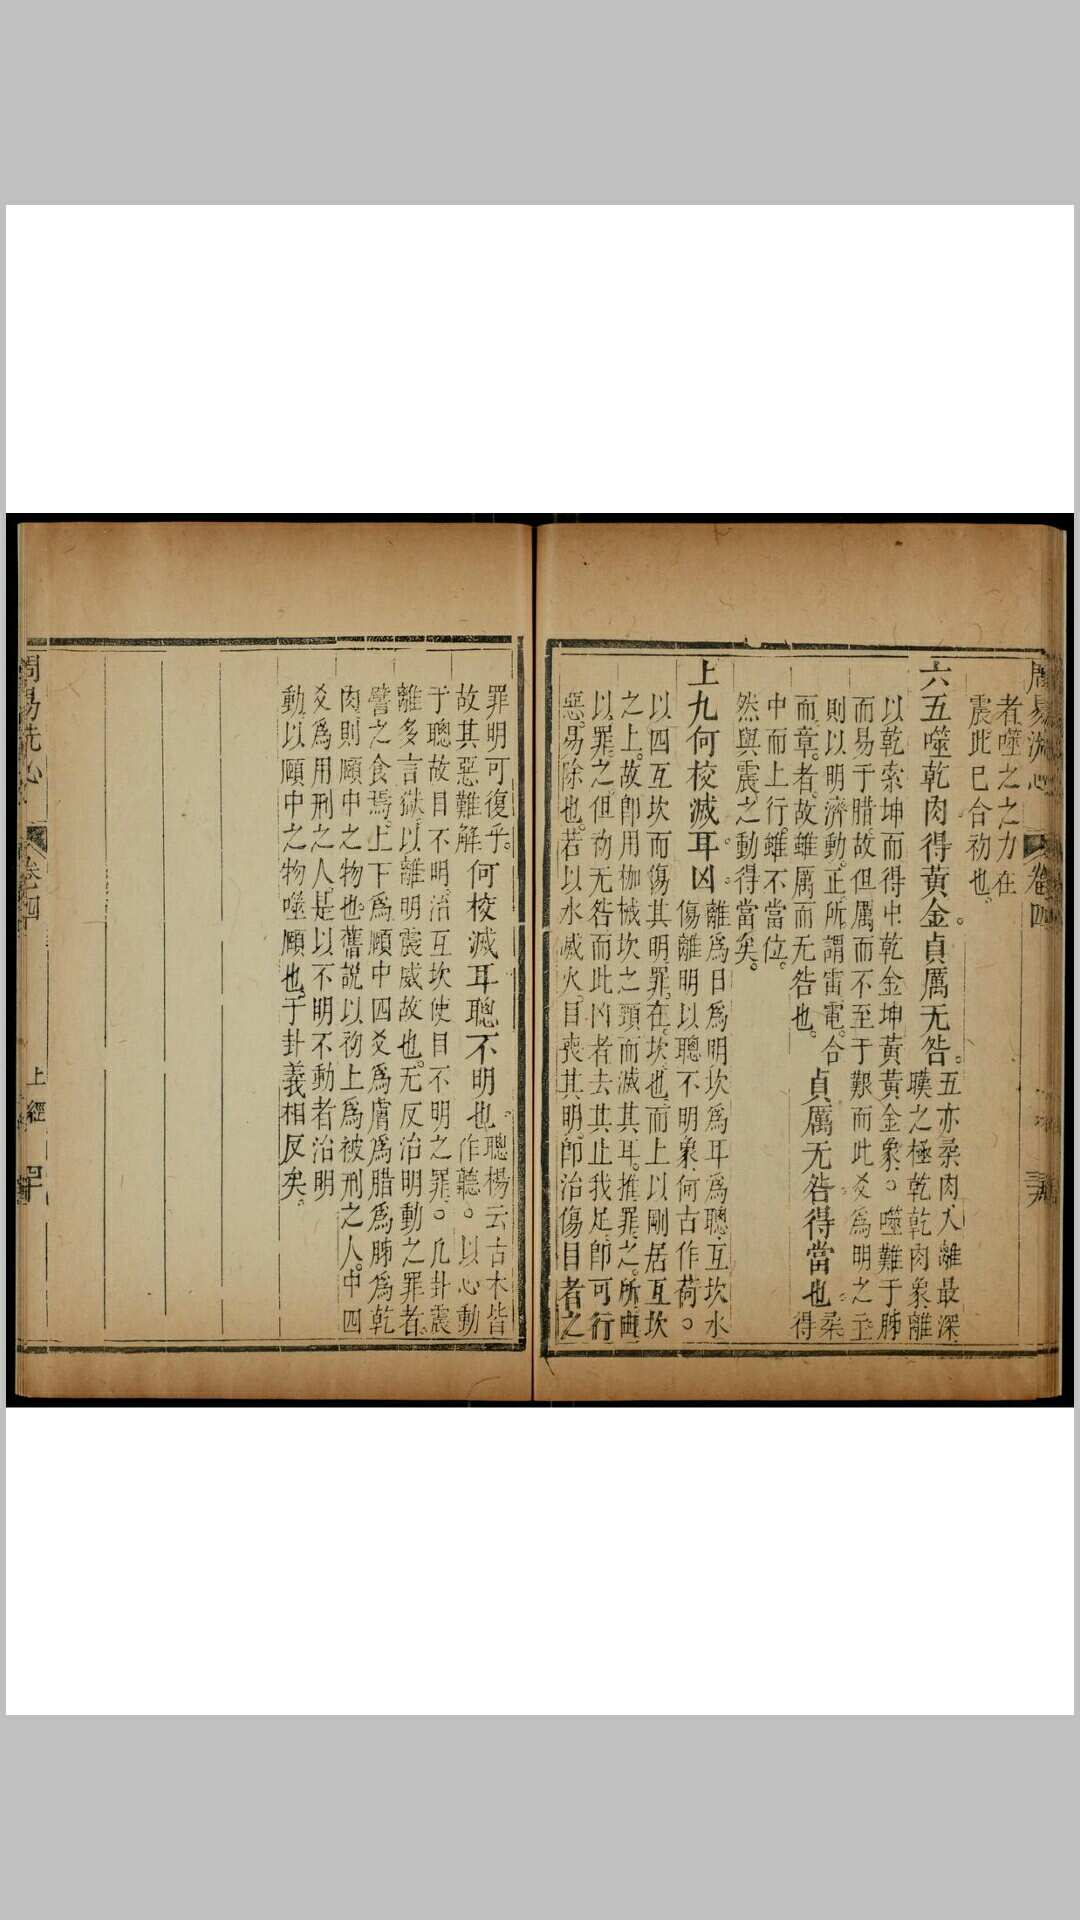 周易洗心
卷四
者噬之之力在
震此已合初也
六五噬乾肉得黃金貞厲无咎
五亦柔肉入離最深
嘆之極乾乾肉象離
以乾索坤而得中乾金坤黃黃金象噬難于胏
而易于腊故但厲而不至于艱而此爻爲明之主
則以明濟動正所謂雷電合
而章者故雖厲而无咎也
貞厲无咎得當也
柔
得
中而上行雖不當位
然與震之動得當矣
上九何校滅耳凶
離爲日爲明坎爲耳爲聰互坎水
傷離明以聰不明象何古作荷
以四互坎而傷其明罪在坎也而上以剛居互坎
之上故卽用枷械坎之頸而滅其耳推罪之所由
以罪之但初无咎而此凶者去其止我足卽可行
惡易除也若以水滅火目喪其明卽治傷目者之
罪明可復乎
故其惡難解
何校滅耳聰不明也
聰楊云古木皆
作聽以心動
于聰故目不明治互坎使目不明之罪凡卦震
離多言獄以離明震威故也无反治明動之罪者
譬之食焉上下爲頤中四爻爲膚爲腊爲胏爲乾
肉則頤中之物也舊説以初上爲被刑之人中四
爻爲用刑之人是以不明不動者治明
動以頤中之物噬頤也于卦義相反矣
周易洗心
卷四
上經
四十